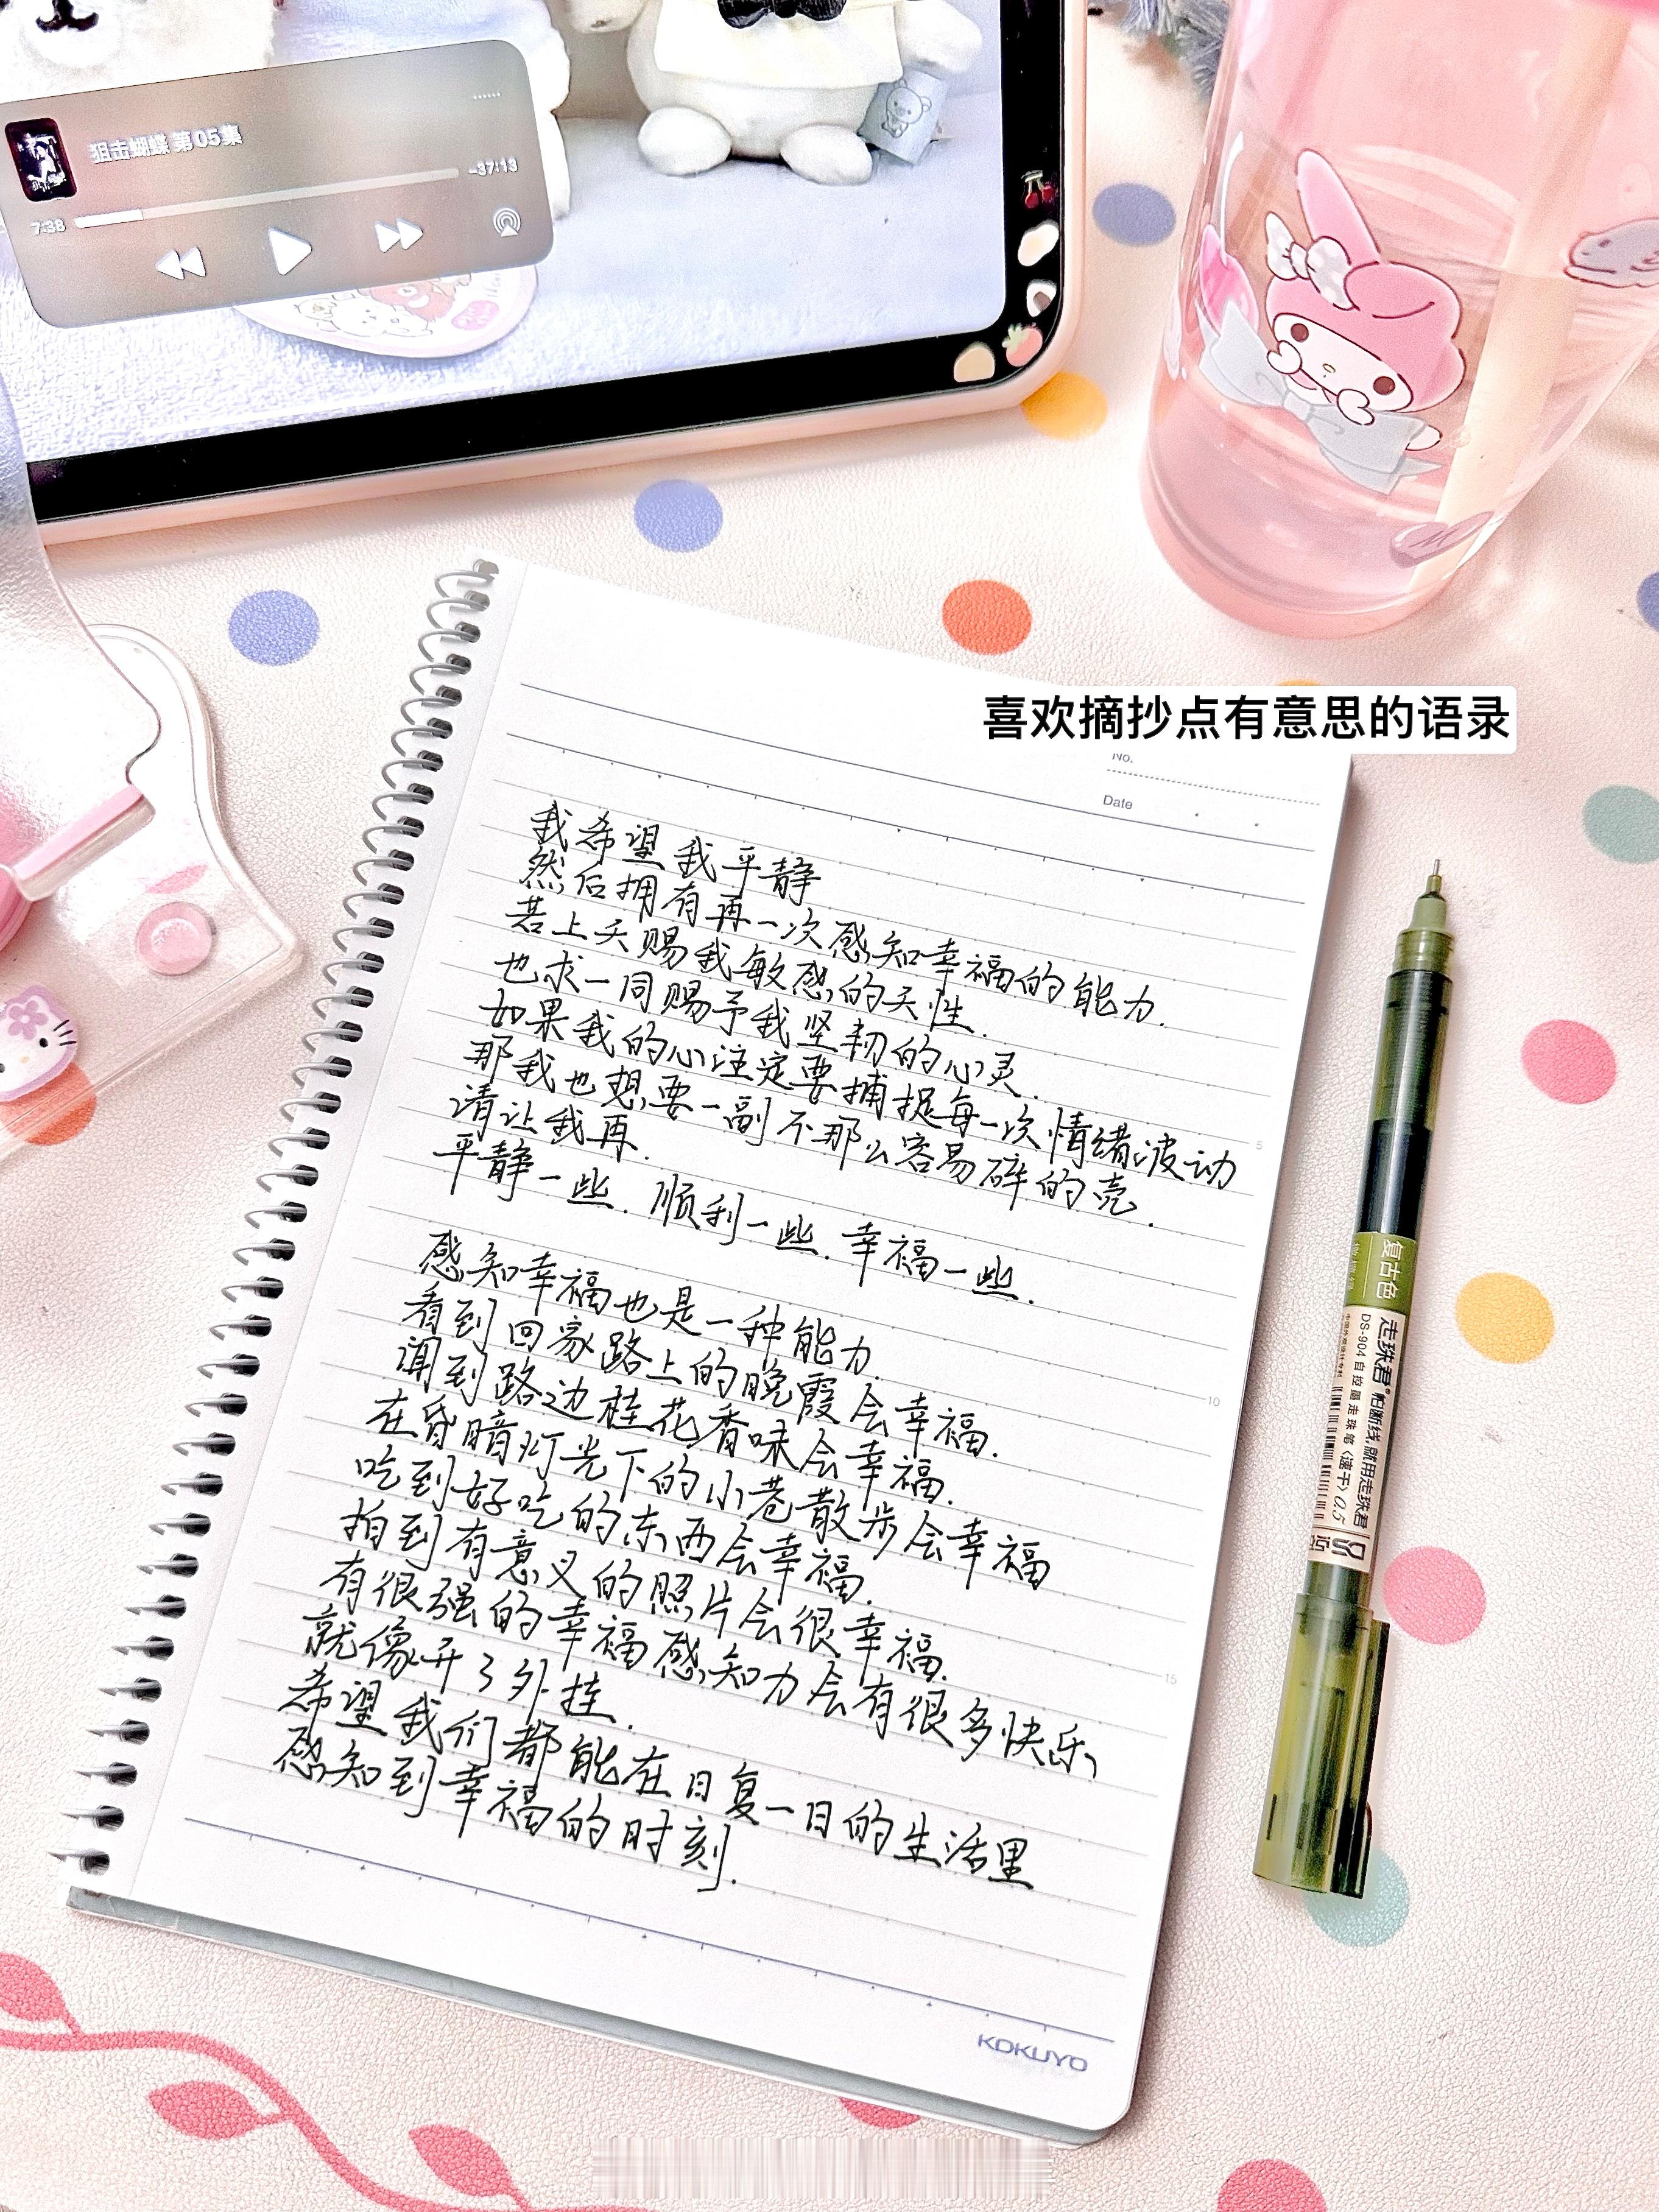 狙击蝴蝶 第05集
7:38
-37:13
喜欢摘抄点有意思的语录
No.
Date
我希望我平静
然后拥有再一次感知幸福的能力.
若上天赐我敏感的天性.
也求一同赐予我坚韧的心灵.
如果我的心注定要捕捉每一次情绪波动
那我也想要一副不那么容易碎的壳.
请让我再.
平静一些.顺利一些.幸福一些.
感知幸福也是一种能力.
看到回家路上的晚霞会幸福.
闻到路边桂花香味会幸福.
在昏暗灯光下的小巷散步会幸福
吃到好吃的东西会幸福.
拍到有意义的照片会很幸福.
有很强的幸福感知力会有很多快乐,
就像开了外挂.
希望我们都能在日复一日的生活里
感知到幸福的时刻.
5
10
15
KOKUYO
复古色
走珠君® 怕断线,就用走珠君
DS-904 自控晶走珠笔(速干) 0.5